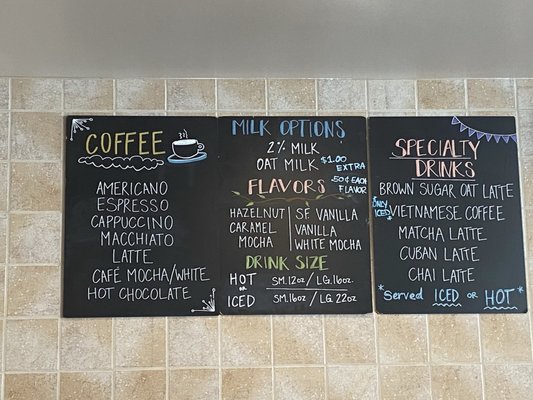 COFFEE
AMERICANO
ESPRESSO
CAPPUCCINO
MACCHIATO
LATTE
CAFÉ MOCHA/WHITE
HOT CHOCOLATE
MILK OPTIONS
2% MILK
OAT MILK $1.00 EXTRA
FLAVORS .50¢ EACH FLAVOR
HAZELNUT | SF VANILLA
CARAMEL | VANILLA
MOCHA | WHITE MOCHA
DRINK SIZE
HOT SM.12oz / LG.16oz.
OR
ICED SM.16oz / LG 22oz
SPECIALTY
DRINKS
BROWN SUGAR OAT LATTE
*ONLY ICED* VIETNAMESE COFFEE
MATCHA LATTE
CUBAN LATTE
CHAI LATTE
*Served ICED OR HOT*